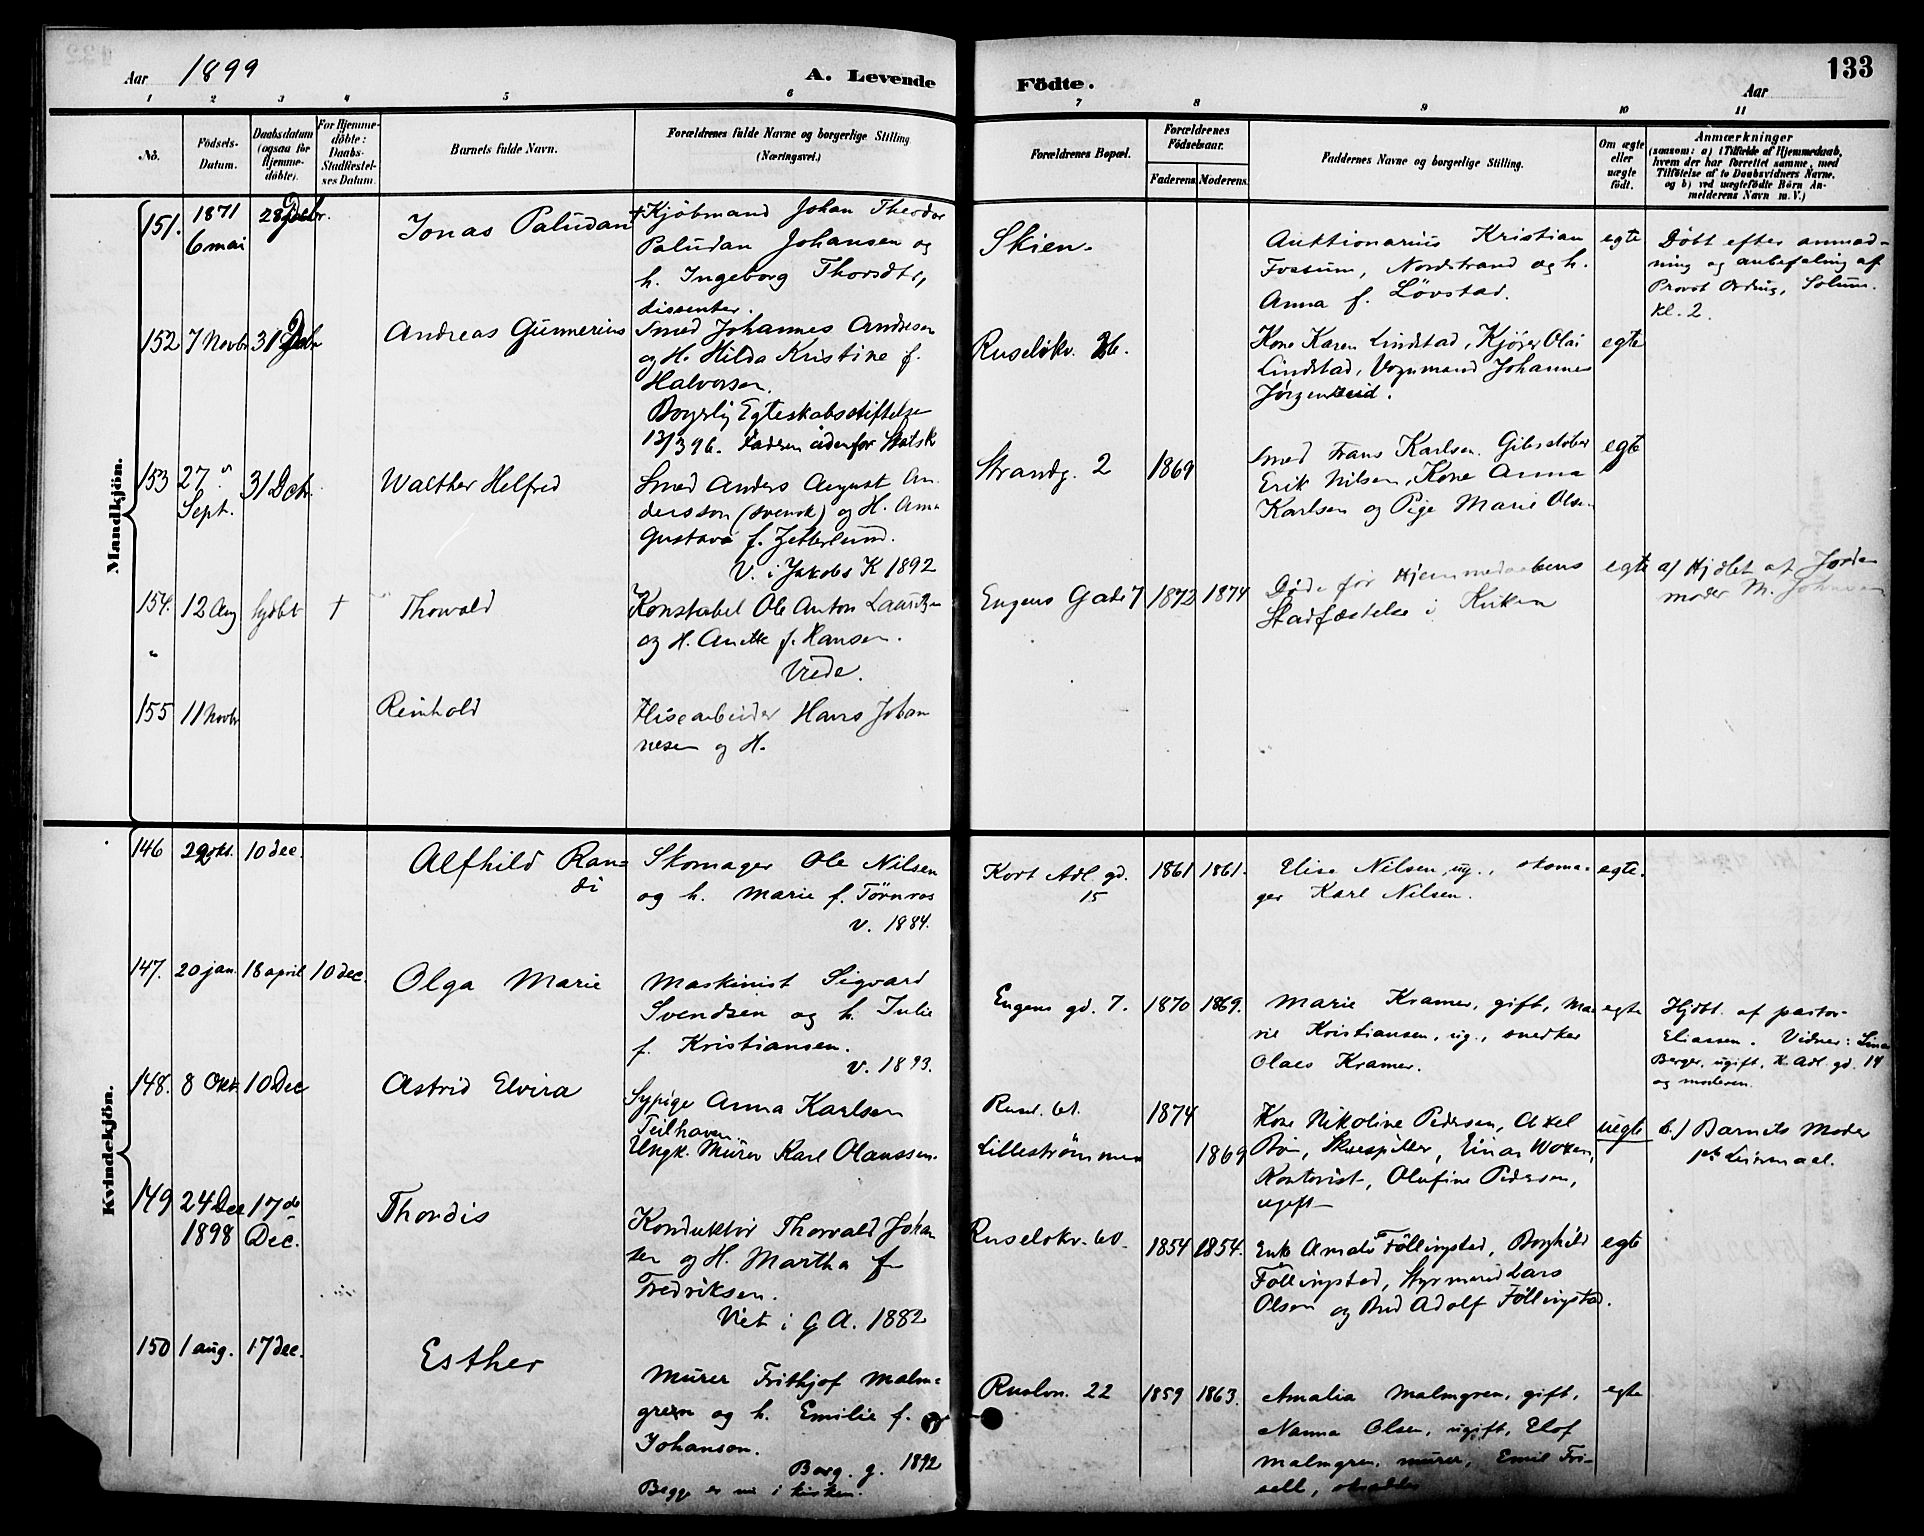 Aar 1899
A. Levende
Födte.
Aar
133
1 2 3 4 5 6 7 8 9 10 11
No.
Födsels-
Datum.
Daabsdatum
(ogsaa for
Hjemme-
döbte).
For Hjemme-
döbte:
Daabs-
Stadfæstel-
ses Datum.
Barnets fulde Navn.
Forældrenes fulde Navne og borgerlige Stilling
(Næringsvei.)
Forældrenes Bopæl.
Forældrenes
Födselsaar.
Faderens Moderens.
Faddernes Navne og borgerlige Stilling.
Om ægte
eller
uægte
født.
Anmærkninger
(saasom: a) i Tilfælde af Hjemmedaab,
hvem der har forrettet samme, med
Tilföielse af to Daabsvidners Navne.
og b) ved uægtefödte Börn An-
melderens Navn m. V.)
Mandkjön.
151.
1871
6 mai
Jonas Paludan
Kjöbmand Johan Theodor
Paludan Johansen og
h. Ingeborg Thorsdtr,
dissenter.
Skien.
Auktionarius Kristian
Fossum, Nordstrand og h.
Anna f. Lövstad.
egte
Döbt efter anmod-
ning og anbefaling af
Provst Ording, Solum.
kl. 2.
152 7 Novbr 31
Andreas Gunnerius
Smed Johannes Andresen
og H. Hilda Kristine f.
Halvorsen.
Borgerlig Egteskabsstiftelse
13/3 96. Faderen udenfor Statsk
Ruselökv.
Kone Karen Lindstad, Kjører Olai
Lindstad, Vognmand Johannes
egte
153 27
Sept.
31 Dcbr.
Walther Helfred
Smed Anders August An-
dersson (svensk) og H. Anna
Gustava f. Zetterlund.
V. i Jakobs K 1892
Strandg. 2
1869
Smed Frans Karlsen, Gibsstøber
Erik Nilsen, Kone Anna
Karlsen og Pige Marie Olsen
egte
154. 12 Aug hjdbt †
Thorvald
Konstabel Ole Anton Lauritzen
og H. Anette f. Hansen.
Viede.
Engens Gade 7
1872 1874
Døde før Hjemmedaabens
Stadfæstelse i Kirken
egte
a) Hjdbt af Jorde
moder M. Johnsen
155 11 Novbr
Reinhold
Flisearbeider Hans Johan
nesen og H.
Kvindekjön.
146 29 okt. 10 dec.
Alfhild Ran-
di
Skomager Ole Nilsen
og h. Marie f. Törnros
v. 1884.
Kort Adl. gd.
15
1861 1861.
Elise Nilsen, ug., skoma-
ger Karl Nilsen.
egte.
147. 20 jan. 18 april 10 dec.
Olga Marie
Maskinist Sigvard
Svendsen og h. Julie
f. Kristiansen.
v. 1893.
Engens gd. 7.
1870 1869.
Marie Kramer, gift, Ma-
rie Kristiansen, ug., snedker
Claes Kramer.
egte
Hjdbt. af pastor
Eliassen. Vidner: Lina
Berger, ugift, K. Adl. gd. 14
og moderen.
148. 8 Okt. 10 Dec
Astrid Elvira
Sypige Anna Karlsen
Teilhaven.
Ungk. Murer Karl Olaussen.
Rusel. 61.
Lillestrømmen
1874
1869
Kone Nikoline Pedersen, Axel
Bøe, Skuespiller, Einar Woxen,
Kontorist, Olufine Pedersen,
ugift
uegte
b.) Barnets Moder
1ste Leiermaal.
149 24 Dec
1898
17de
Dec.
Thordis
Konduktör Thorvald Johan
sen og H. Martha f.
Fredriksen.
Viet i G A. 1882
Ruselökv. 60.
1854 1854.
Enke Amala Föllingstad, Borghild
Föllingstad, Styrmand Lars
Olsen og Bud Adolf Föllingstad.
egte
150 1 aug. 17 dec.
Esther
Murer Frithjof Malm-
green og h. Emilie f.
Johanson.
Borg. g. 1892
Begge er nu i kirken.
Ruslvn. 22
1859 1863.
Amalia Malmgren, gift,
Nanna Olsen, ugift, Elof
Malmgren, murer, Emil Fri-
sell,
egte